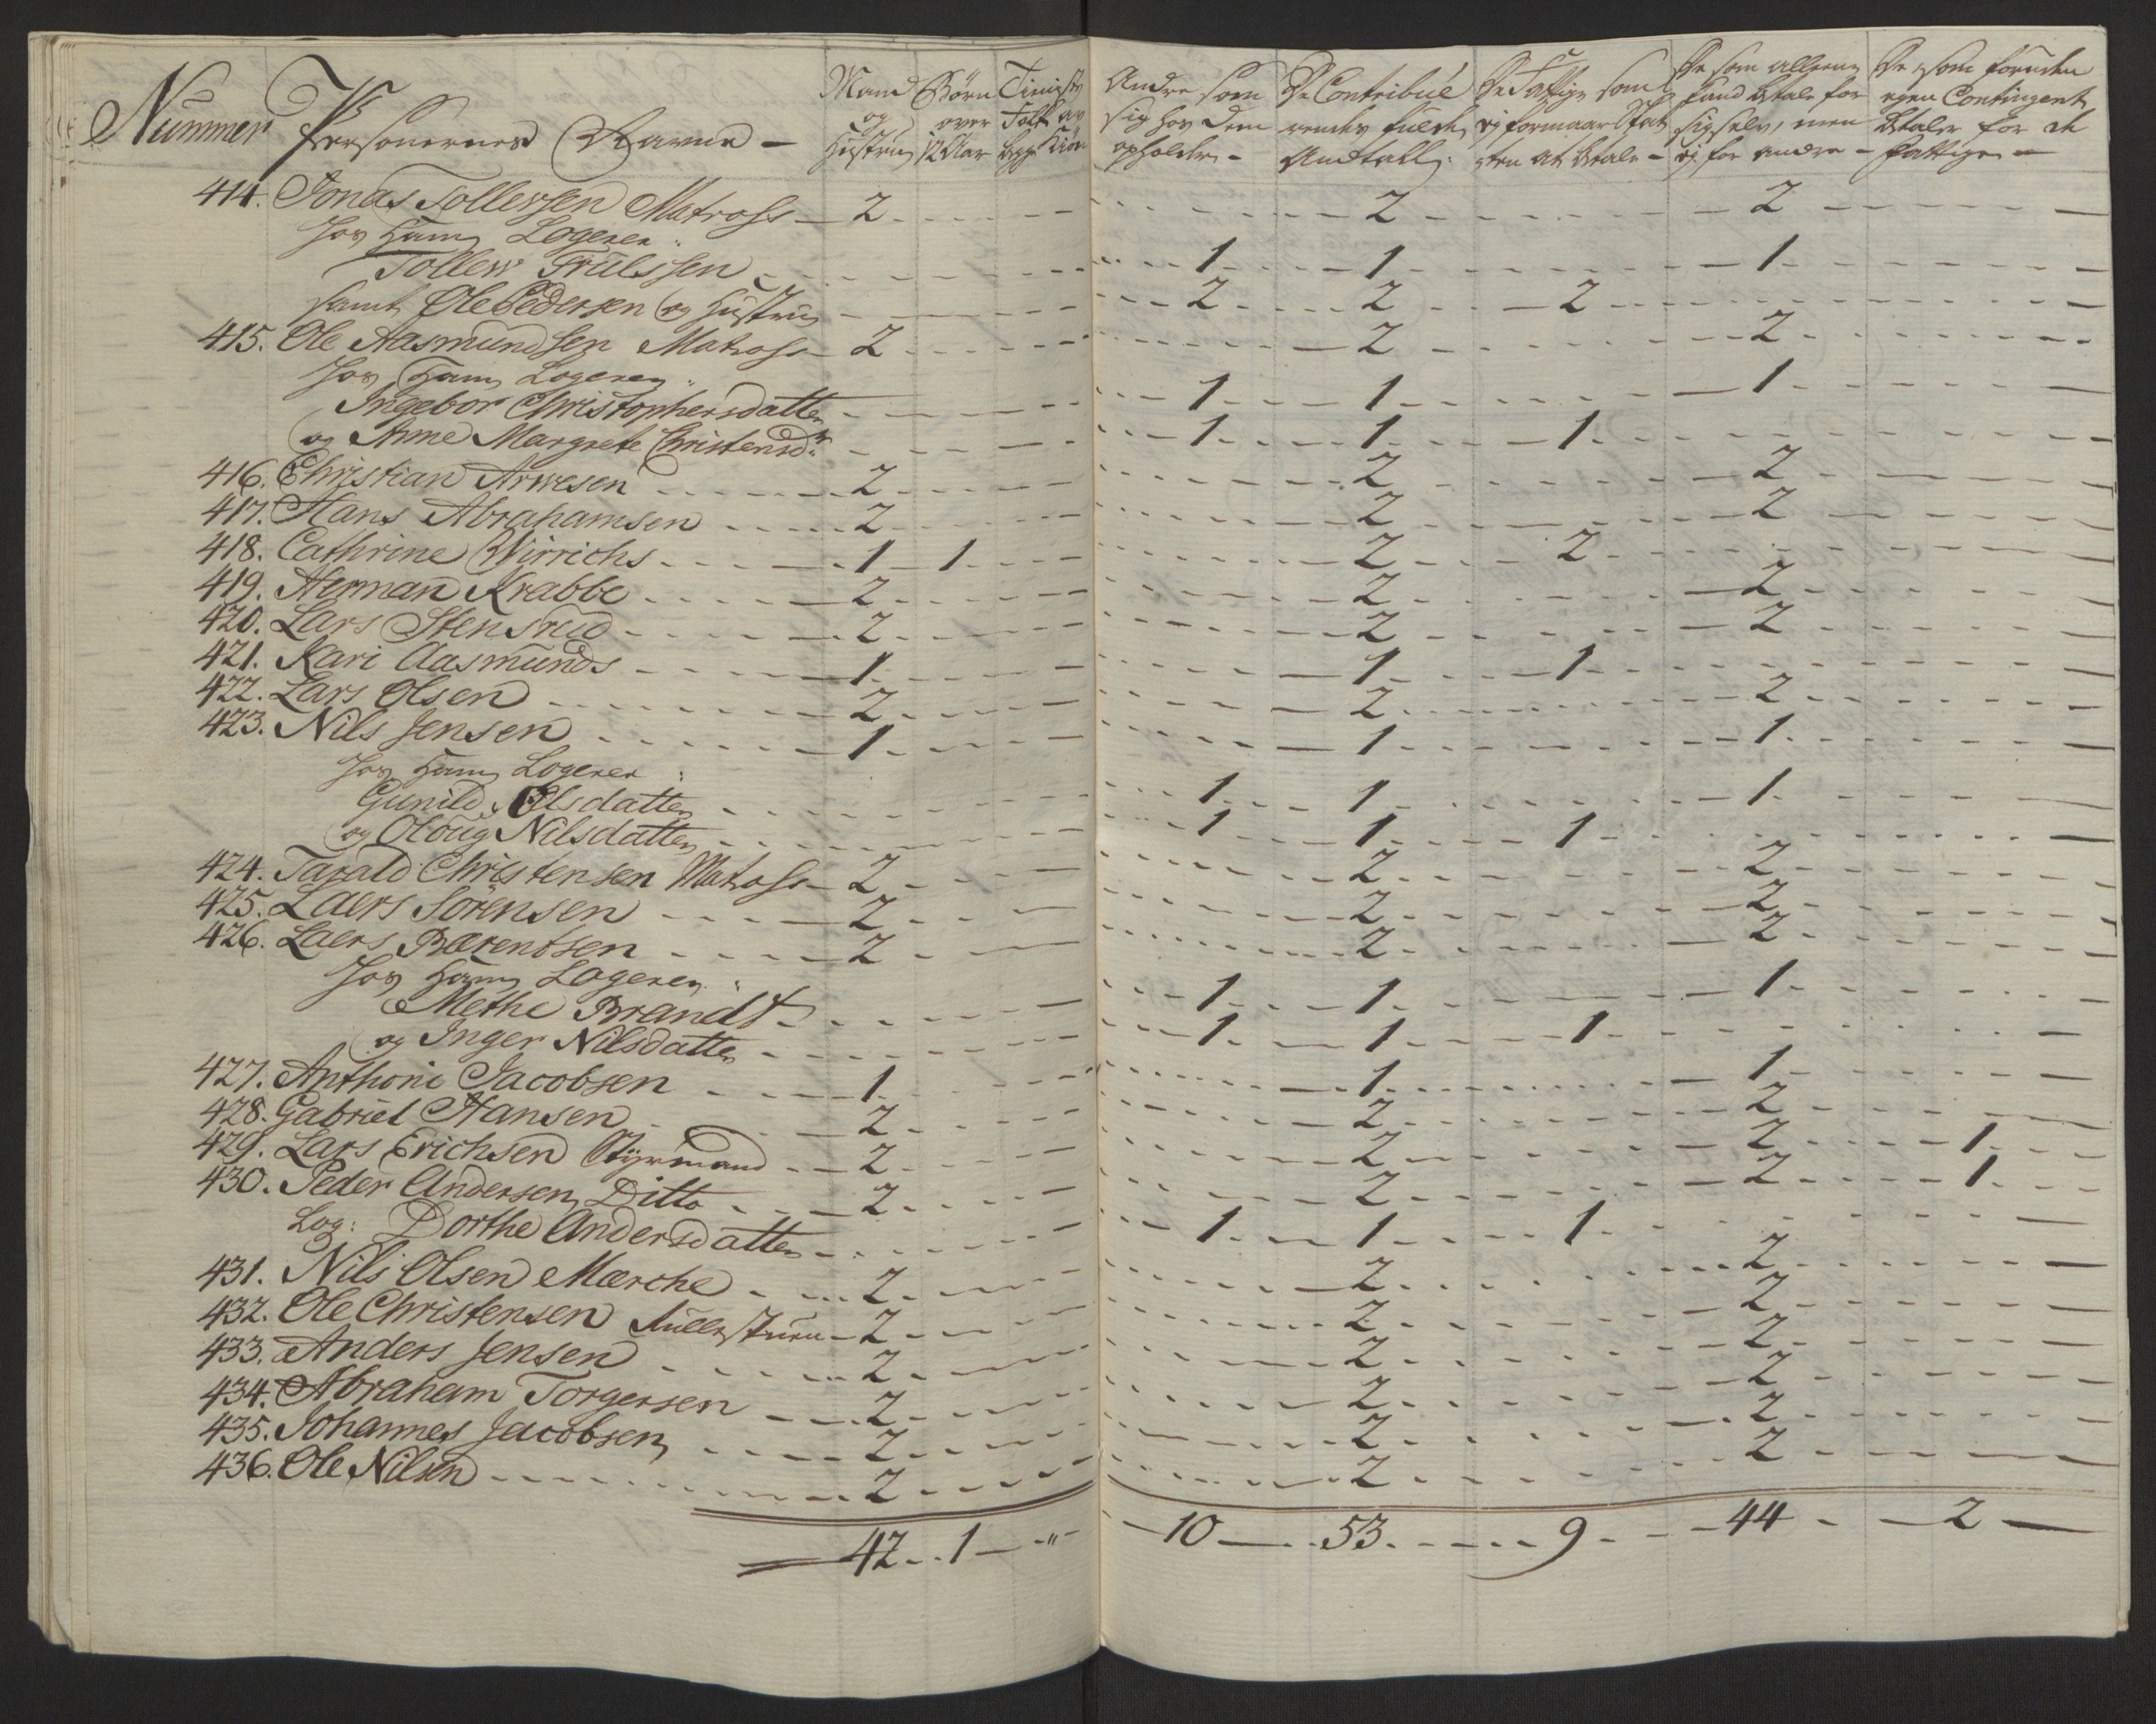 Nummer Personernes Navne - Mand og Hustru Børn over 12 Aar Tieniste Folk av begge Kiøn Andre som sig hos dem opholder - De Contribuerendes fulde Andtall. De Fattige som ej formaar Skatten at betale - De som alleene kand betale for sig selv, men ej for andre - De som foruden egen Contingent betaler for de fattige -
414. Jonas Tollefsen Matross 2 2 2
hos ham Logerer:
Tollew Trulssen 1 1 1
samt Ole Pedersen og Hustru 2 2 2
415. Ole Aasmundsen Matross 2 2 2
hos ham Logerer:
Ingebor Christophersdatter 1 1 1
og Anne Margrete Christensdr 1 1 1
416. Christian Arwesen 2 2 2
417. Hans Abrahamsen 2 2 2
418. Cathrine Wirrichs 1 1 2 2
419. Herman Krabbe 2 2 2
420. Lars Stensrud 2 2 2
421. Kari Aasmunds 1 1 1
422. Lars Olsen 2 2 2
423. Nils Jensen 1 1 1
hos ham Logerer:
Gunild Olsdatter 1 1 1
og Oloug Nilsdatter 1 1 1
424. Tarald Christensen Matross 2 2 2
425. Laers Sörensen 2 2 2
426. Laers Bærentsen 2 2 2
hos ham Logerer:
Methe Brandt 1 1 1
og Inger Nilsdatter 1 1 1
427. Anthoni Jacobsen 1 1 1
428. Gabriel Hansen 2 2 2
429. Lars Erichsen Styrmand 2 2 2 1
430. Peder Andersen Ditto 2 2 2 1
Log: Dorthe Andersdatter 1 1 1
431. Nils Olsen Mærche 2 2 2
432. Ole Christensen 2 2 2
433. Anders Jensen 2 2 2
434. Abraham Torgersen 2 2 2
435. Johannes Jacobsen 2 2 2
436. Ole Nilsen 2 2 2
42 1 " 10 53 9 44 2